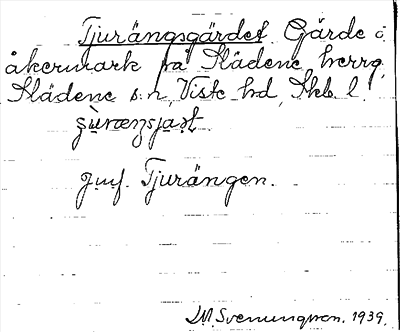 Tjurängsgärdet. Gärde o
åkermark på Slädene herrg.
Slädene s:n, Viste hd, Skb. l.
Jmf. Tjurängen.
M. Svenungsson. 1939.